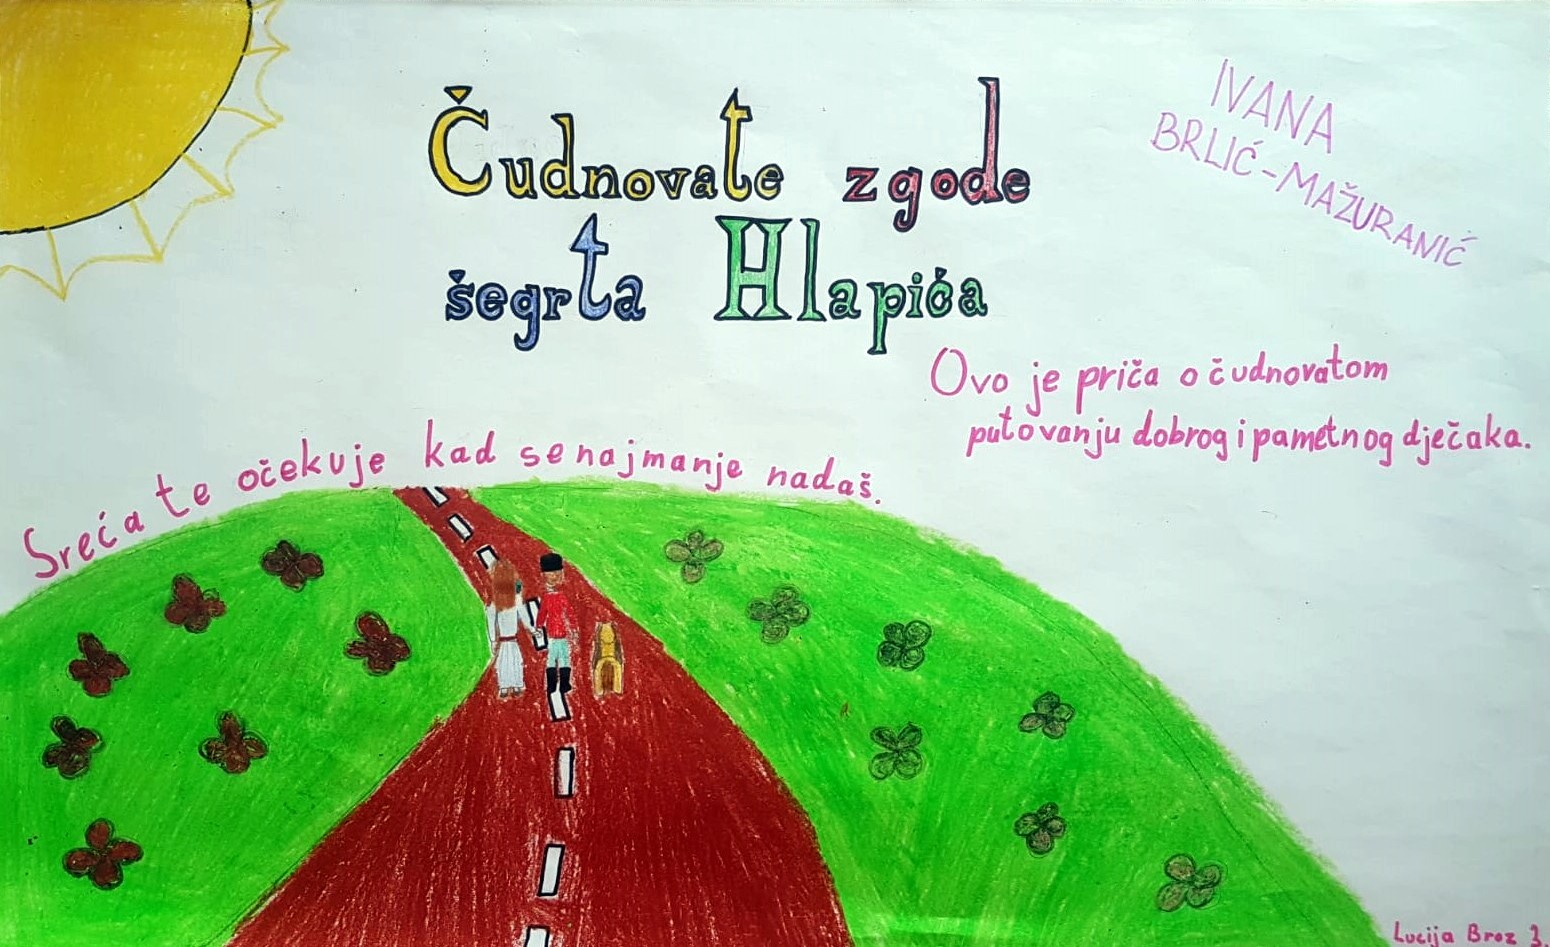 Čudnovate zgode
šegrta Hlapića
IVANA
BRLIĆ-MAŽURANIĆ
Ovo je priča o čudnovatom
putovanju dobrog i pametnog dječaka.
Sreća te očekuje kad se najmanje nadaš.
Lucija Broz 3.